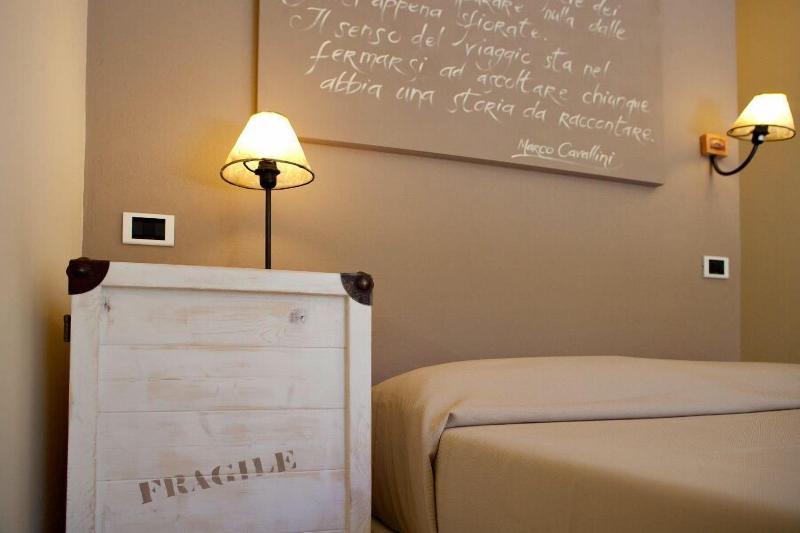 appena sfiorate.
Il senso del viaggio sta nel
fermarsi ad ascoltare chiunque
abbia una storia da raccontare.
Marco Cavallini
FRAGILE